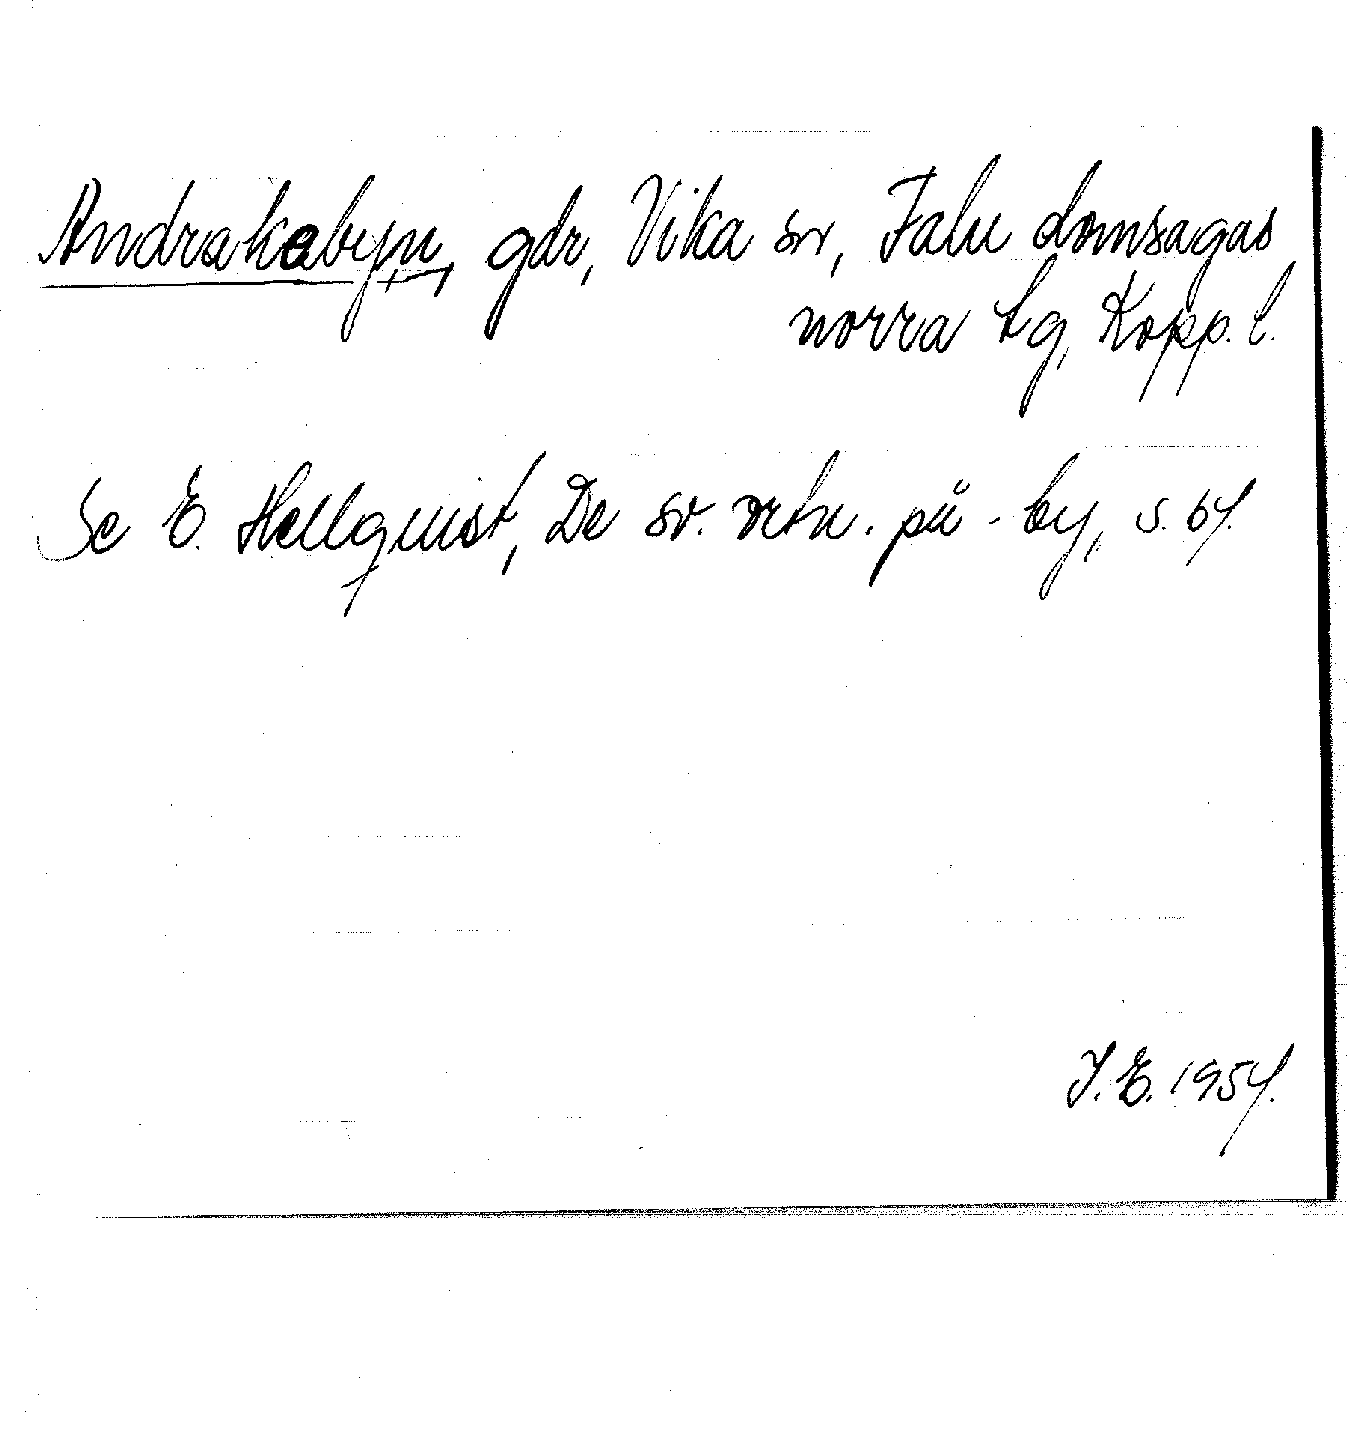 Andrakabyn, gdr, Vika sn, Falu domsagas
norra tg, Kopp. l.
Se E. Hellquist, De sv. ortn. på -by, s. 64.
J. E. 1954.